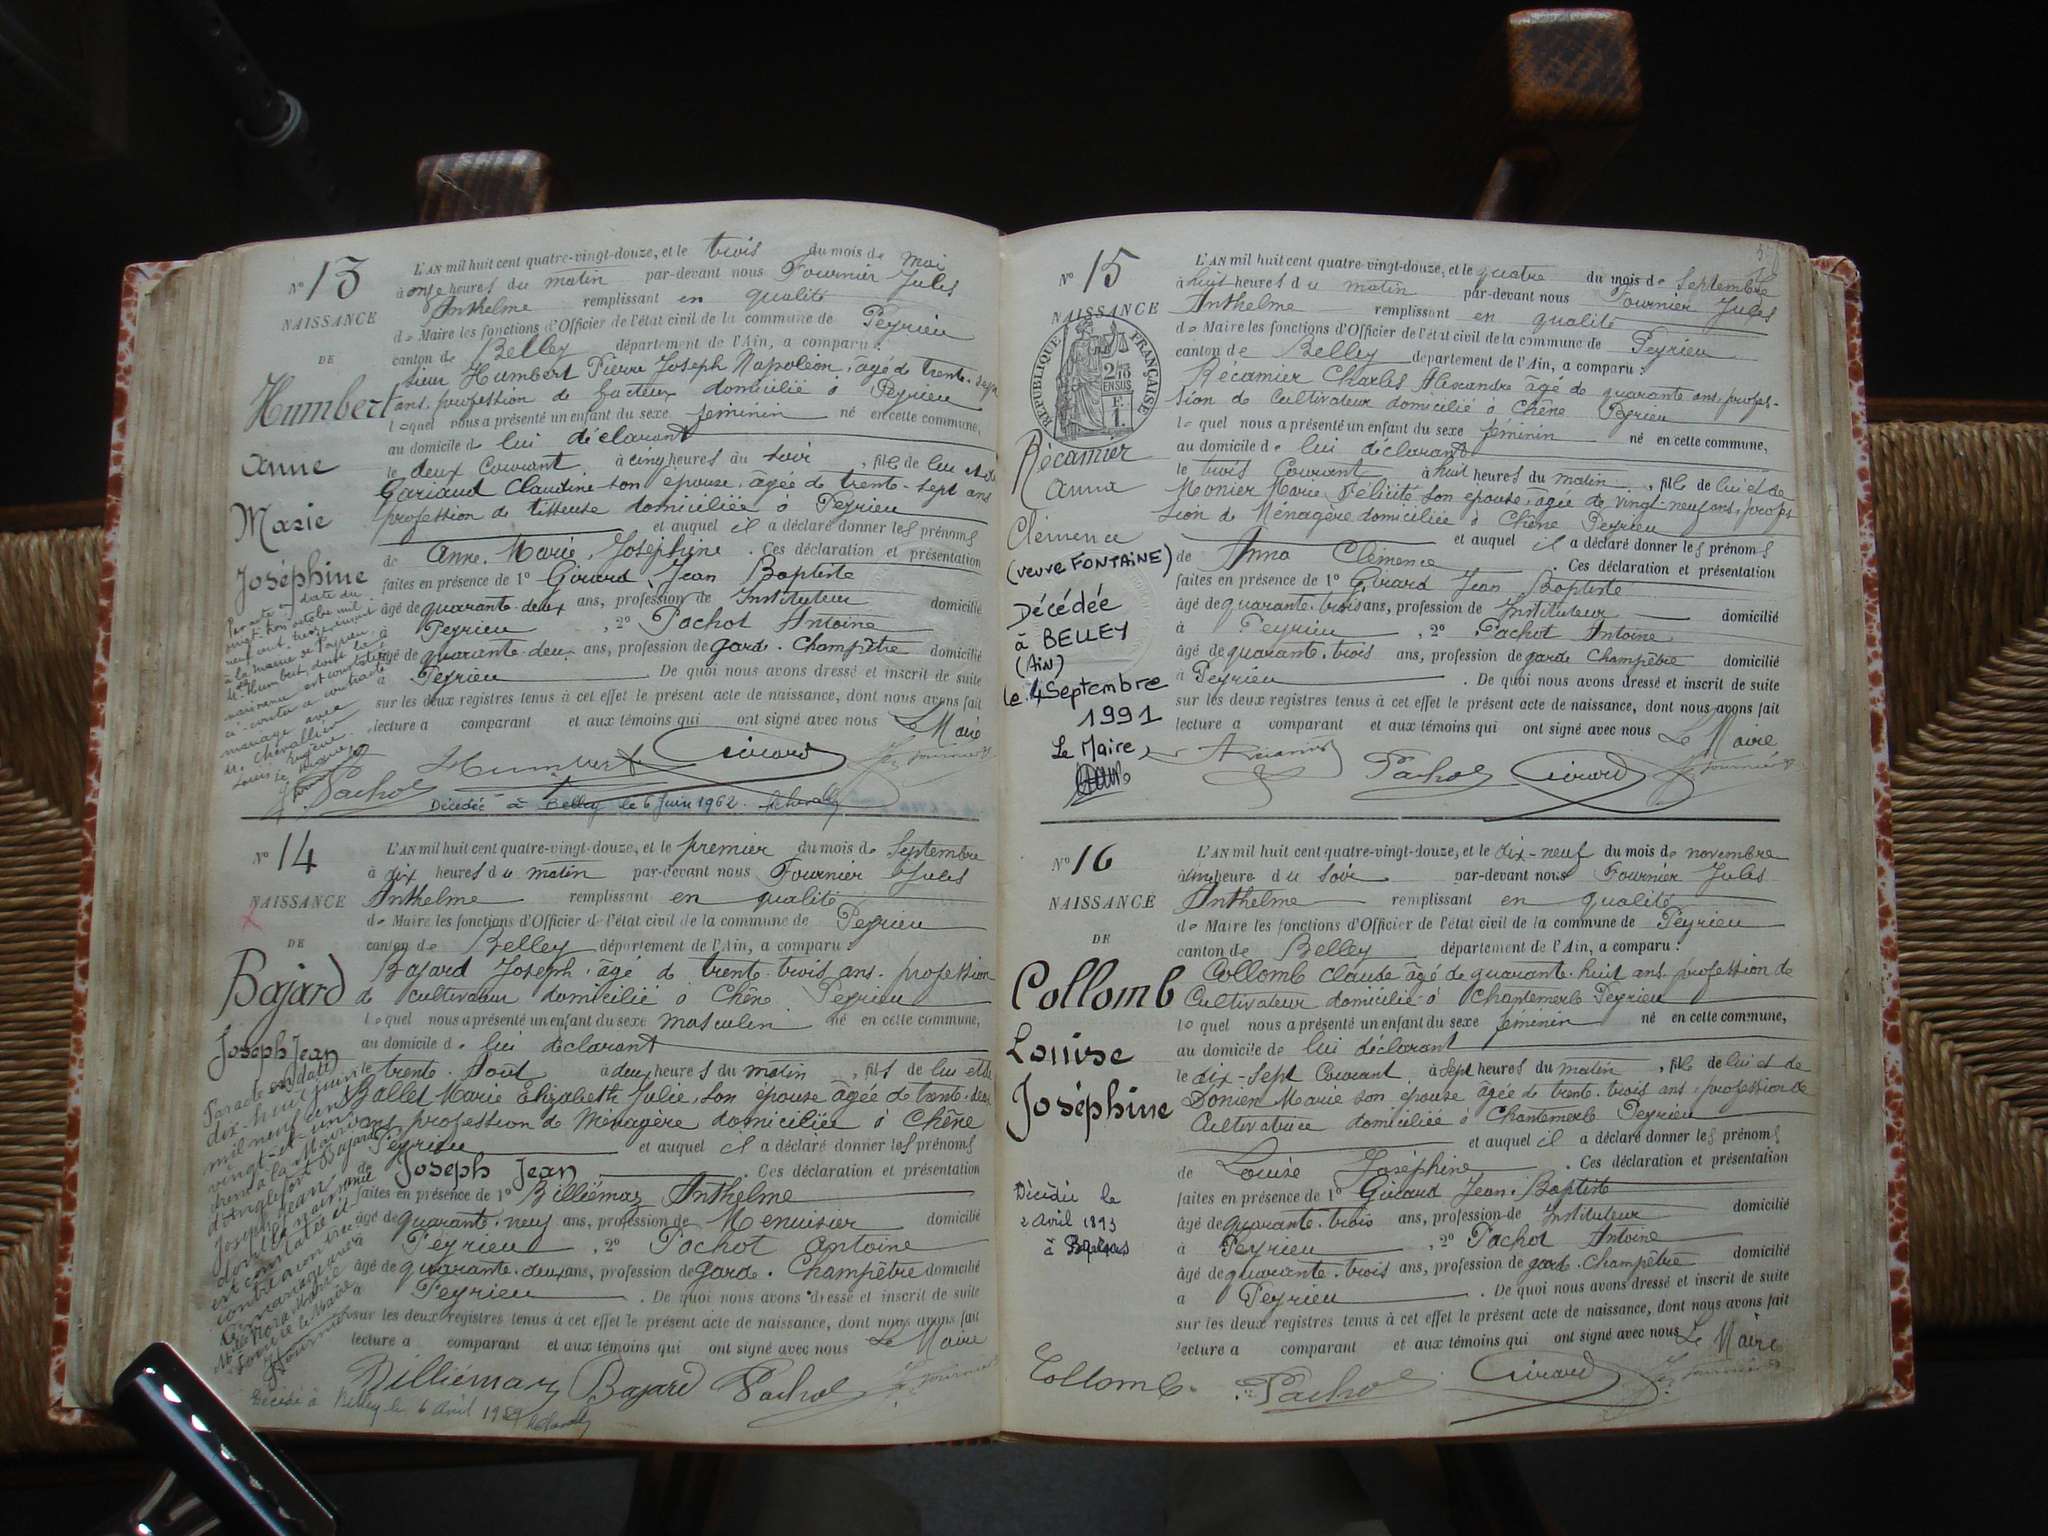 N° 13
NAISSANCE
DE
Humbert
Anne
Marie
Joséphine
Par acte en date du
vingt-trois octobre mil
neuf cent
à la mairie de Peyrieu,
Humbert, dont la
naissance est constatée
ci-contre a contracté
mariage avec
Mr Chevallier
Louis Eugène
L'AN mil huit cent quatre-vingt-douze, et le trois du mois de Mai
à onze heures du matin par-devant nous Fournier Jules
Anthelme remplissant en qualité
de Maire les fonctions d'Officier de l'état civil de la commune de Peyrieu
canton de Belley département de l'Ain, a comparu :
sieur Humbert Pierre Joseph Napoléon, âgé de trente-sept
ans, profession de facteur domicilié à Peyrieu
lequel nous a présenté un enfant du sexe féminin né en cette commune,
au domicile de lui déclarant
le deux Courant à cinq heures du soir, fille de lui et de
Gariaud Claudine son épouse, âgée de trente-sept ans
profession de tisseuse domiciliée à Peyrieu
et auquel il a déclaré donner les prénoms
de Anne. Marie. Joséphine. Ces déclaration et présentation
faites en présence de 1° Girard Jean Baptiste
âgé de quarante-deux ans, profession de Instituteur domicilié
à Peyrieu, 2° Pachot Antoine
âgé de quarante-deux ans, profession de garde-Champêtre domicilié
à Peyrieu. De quoi nous avons dressé et inscrit de suite
sur les deux registres tenus à cet effet le présent acte de naissance, dont nous avons fait
lecture a comparant et aux témoins qui ont signé avec nous Le Maire
Humbert Girard Jes Fournier
Pachot
Décédée à Belley le 6 Juin 1962.
N° 14
NAISSANCE
DE
Bajard
Joseph Jean
Par acte en date
dix-huit juin
mil neuf cent
vingt-et-un
dressé à la Mairie
d'Anglefort Bajard
Joseph Jean
dont la naissance
est constatée ci-
contre a contracté
mariage avec
L'AN mil huit cent quatre-vingt-douze, et le premier du mois de Septembre
à dix heures du matin par-devant nous Fournier Jules
Anthelme remplissant en qualité
de Maire les fonctions d'Officier de l'état civil de la commune de Peyrieu
canton de Belley département de l'Ain, a comparu :
Bajard Joseph, âgé de trente-trois ans, profession
de cultivateur domicilié à Chêne Peyrieu
lequel nous a présenté un enfant du sexe masculin né en cette commune,
au domicile de lui déclarant
le trente-Août à deux heures du matin, fils de lui et de
Ballet Marie Elizabeth Julie, son épouse âgée de trente-deux
ans profession de Ménagère domiciliée à Chêne
Peyrieu et auquel il a déclaré donner les prénoms
de Joseph Jean. Ces déclaration et présentation
faites en présence de 1° Billiémaz Anthelme
âgé de quarante-neuf ans, profession de Menuisier domicilié
à Peyrieu, 2° Pachot Antoine
âgé de quarante-deux ans, profession de garde-Champêtre domicilié
à Peyrieu. De quoi nous avons dressé et inscrit de suite
sur les deux registres tenus à cet effet le présent acte de naissance, dont nous avons fait
lecture a comparant et aux témoins qui ont signé avec nous Le Maire
Billiémaz Bajard Pachot Jes Fournier
Décédé à Belley le 6 Avril
N° 15
NAISSANCE
RÉPUBLIQUE FRANÇAISE
Récamier
Anna
Clémence
(veuve FONTAINE)
Décédée
à BELLEY
(Ain)
le 4 Septembre
1991
Le Maire,
L'AN mil huit cent quatre-vingt-douze, et le quatre du mois de Septembre
à huit heures du matin par-devant nous Fournier Jules
Anthelme remplissant en qualité
de Maire les fonctions d'Officier de l'état civil de la commune de Peyrieu
canton de Belley département de l'Ain, a comparu :
Récamier Charles Alexandre âgé de quarante ans, profes-
sion de Cultivateur domicilié à Chêne Peyrieu
lequel nous a présenté un enfant du sexe féminin né en cette commune,
au domicile de lui déclarant
le trois Courant à huit heures du matin, fille de lui et de
Monier Marie Félicité son épouse, âgée de vingt-neuf ans, profes
sion de Ménagère domiciliée à Chêne Peyrieu
et auquel il a déclaré donner les prénoms
de Anna Clémence. Ces déclaration et présentation
faites en présence de 1° Girard Jean Baptiste
âgé de quarante-trois ans, profession de Instituteur domicilié
à Peyrieu, 2° Pachot Antoine
âgé de quarante-trois ans, profession de garde Champêtre domicilié
à Peyrieu. De quoi nous avons dressé et inscrit de suite
sur les deux registres tenus à cet effet le présent acte de naissance, dont nous avons fait
lecture a comparant et aux témoins qui ont signé avec nous Le Maire
Pachot Girard Jes Fournier
N° 16
NAISSANCE
DE
Collomb
Louise
Joséphine
Décédée le
2 Avril 1893
à
L'AN mil huit cent quatre-vingt-douze, et le dix-neuf du mois de novembre
à une heure du soir par-devant nous Fournier Jules
Anthelme remplissant en qualité
de Maire les fonctions d'Officier de l'état civil de la commune de Peyrieu
canton de Belley département de l'Ain, a comparu :
Collomb Claude âgé de quarante-huit ans profession de
Cultivateur domicilié à Chantemerle Peyrieu
lequel nous a présenté un enfant du sexe féminin né en cette commune,
au domicile de lui déclarant
le dix-sept Courant, à sept heures du matin, fille de lui et de
Donien Marie son épouse âgée de trente-trois ans, profession de
Cultivatrice domiciliée à Chantemerle Peyrieu
et auquel il a déclaré donner les prénoms
de Louise Joséphine. Ces déclaration et présentation
faites en présence de 1° Girard Jean-Baptiste
âgé de quarante-trois ans, profession de Instituteur domicilié
à Peyrieu, 2° Pachot Antoine
âgé de quarante-trois ans, profession de garde-Champêtre domicilié
a Peyrieu. De quoi nous avons dressé et inscrit de suite
sur les deux registres tenus à cet effet le présent acte de naissance, dont nous avons fait
lecture a comparant et aux témoins qui ont signé avec nous Le Maire
Collomb. Pachot Girard Jes Fournier